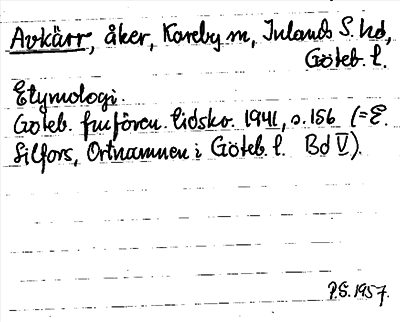 Avkärr, åker, Kareby sn, Inlands S. hd,
Göteb. l.
Etymologi
Göteb. fornfören. tidskr. 1941, s. 156 (= E.
Silfors, Ortnamnen i Göteb. l. Bd V).
P.E. 1957.